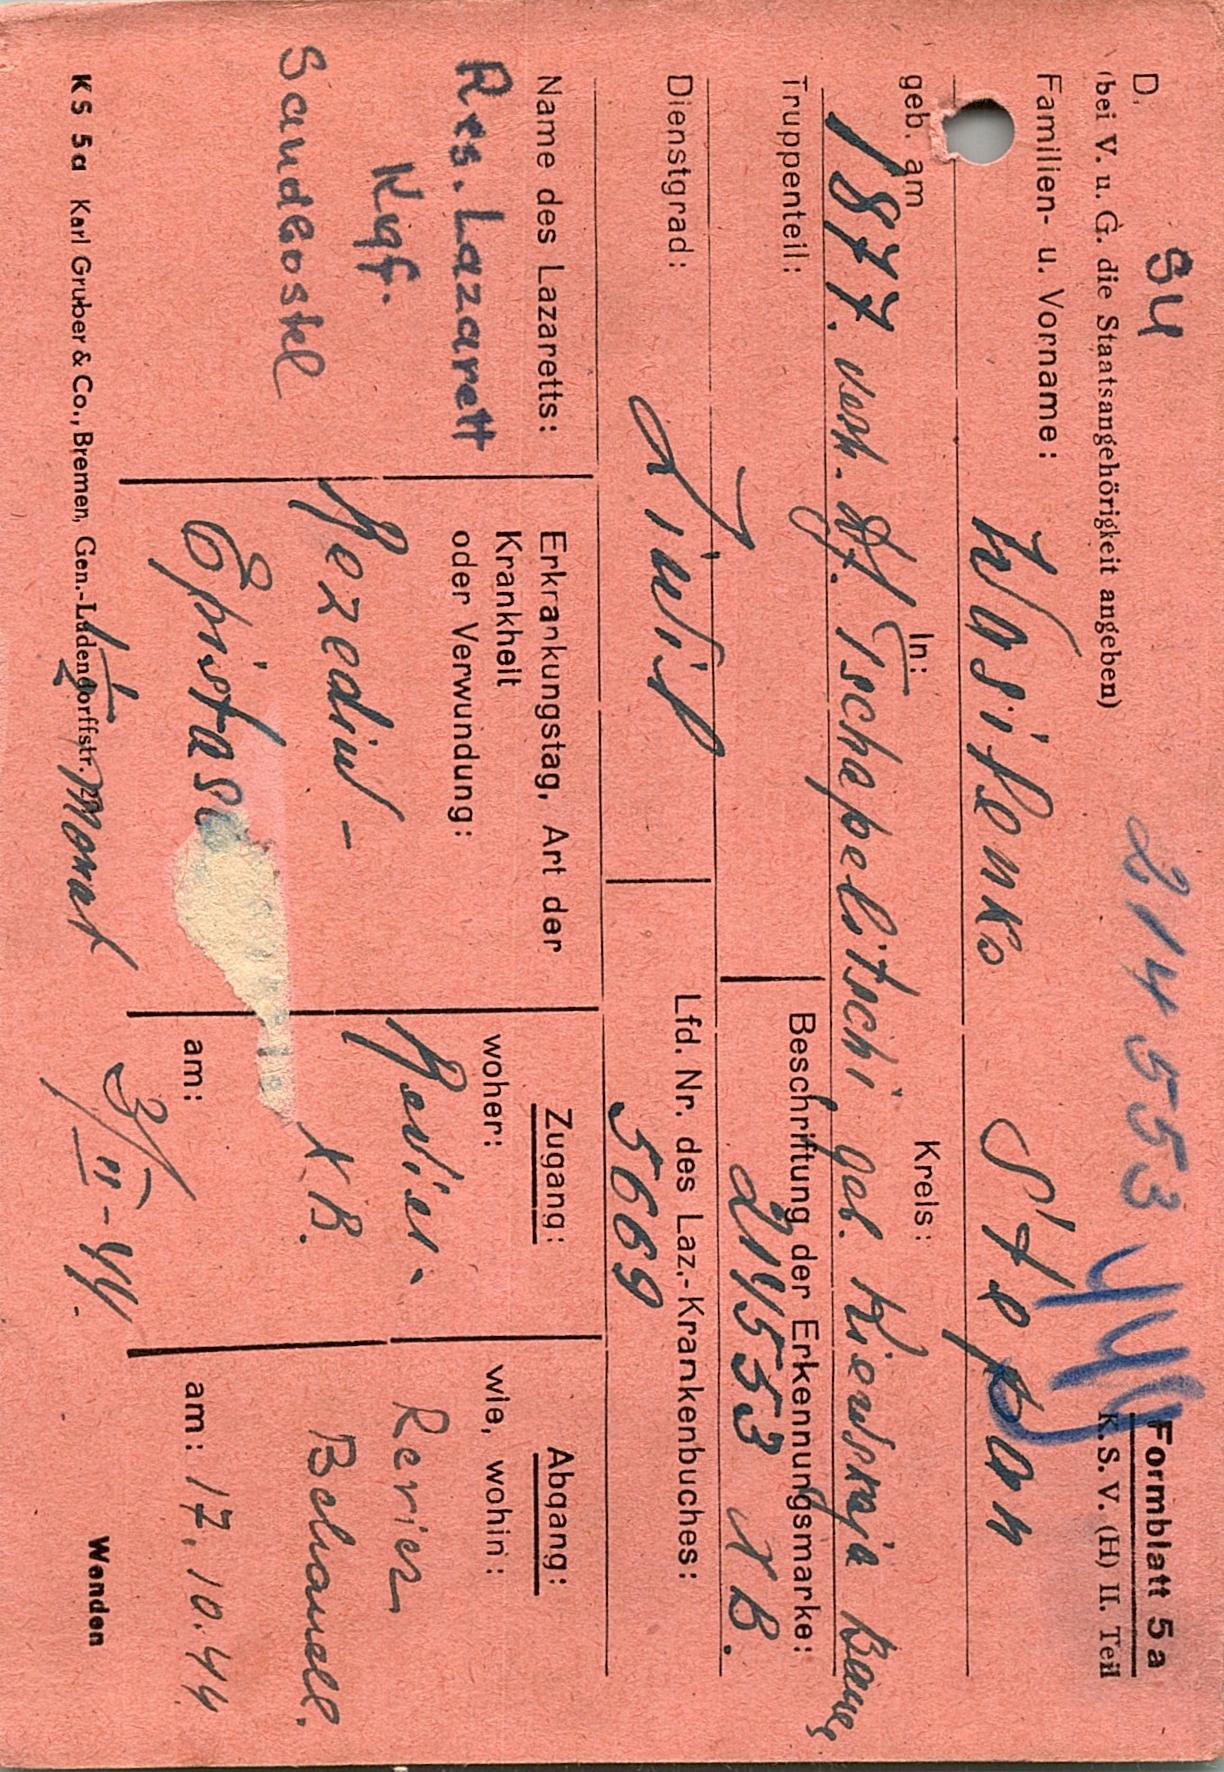 SU 214553
Formblatt 5a
D.
(bei V. u. G. die Staatsangehörigkeit angeben)
K. S. V. (H) II. Teil
Familien- u. Vorname: Wasilenko Stepan
geb. am In: Kreis:
1877. verh. Df. Tschapelitschi geb. Kiewskaja Bauer
Truppenteil: Beschriftung der Erkennungsmarke:
214553 XB.
Dienstgrad: Zivil
Lfd. Nr. des Laz.-Krankenbuches:
5669
Name des Lazaretts:
Res. Lazarett
Kgf.
Sandbostel
Erkrankungstag, Art der
Krankheit
oder Verwundung:
Rezediv-
Epistase
Monat
Zugang:
woher:
Revier.
XB.
am:
Abgang:
wie, wohin:
Revier
Behandl.
am: 17.10.44
KS 5a Karl Gruber & Co., Bremen, Gen.-Ludendorffstr.
Wenden